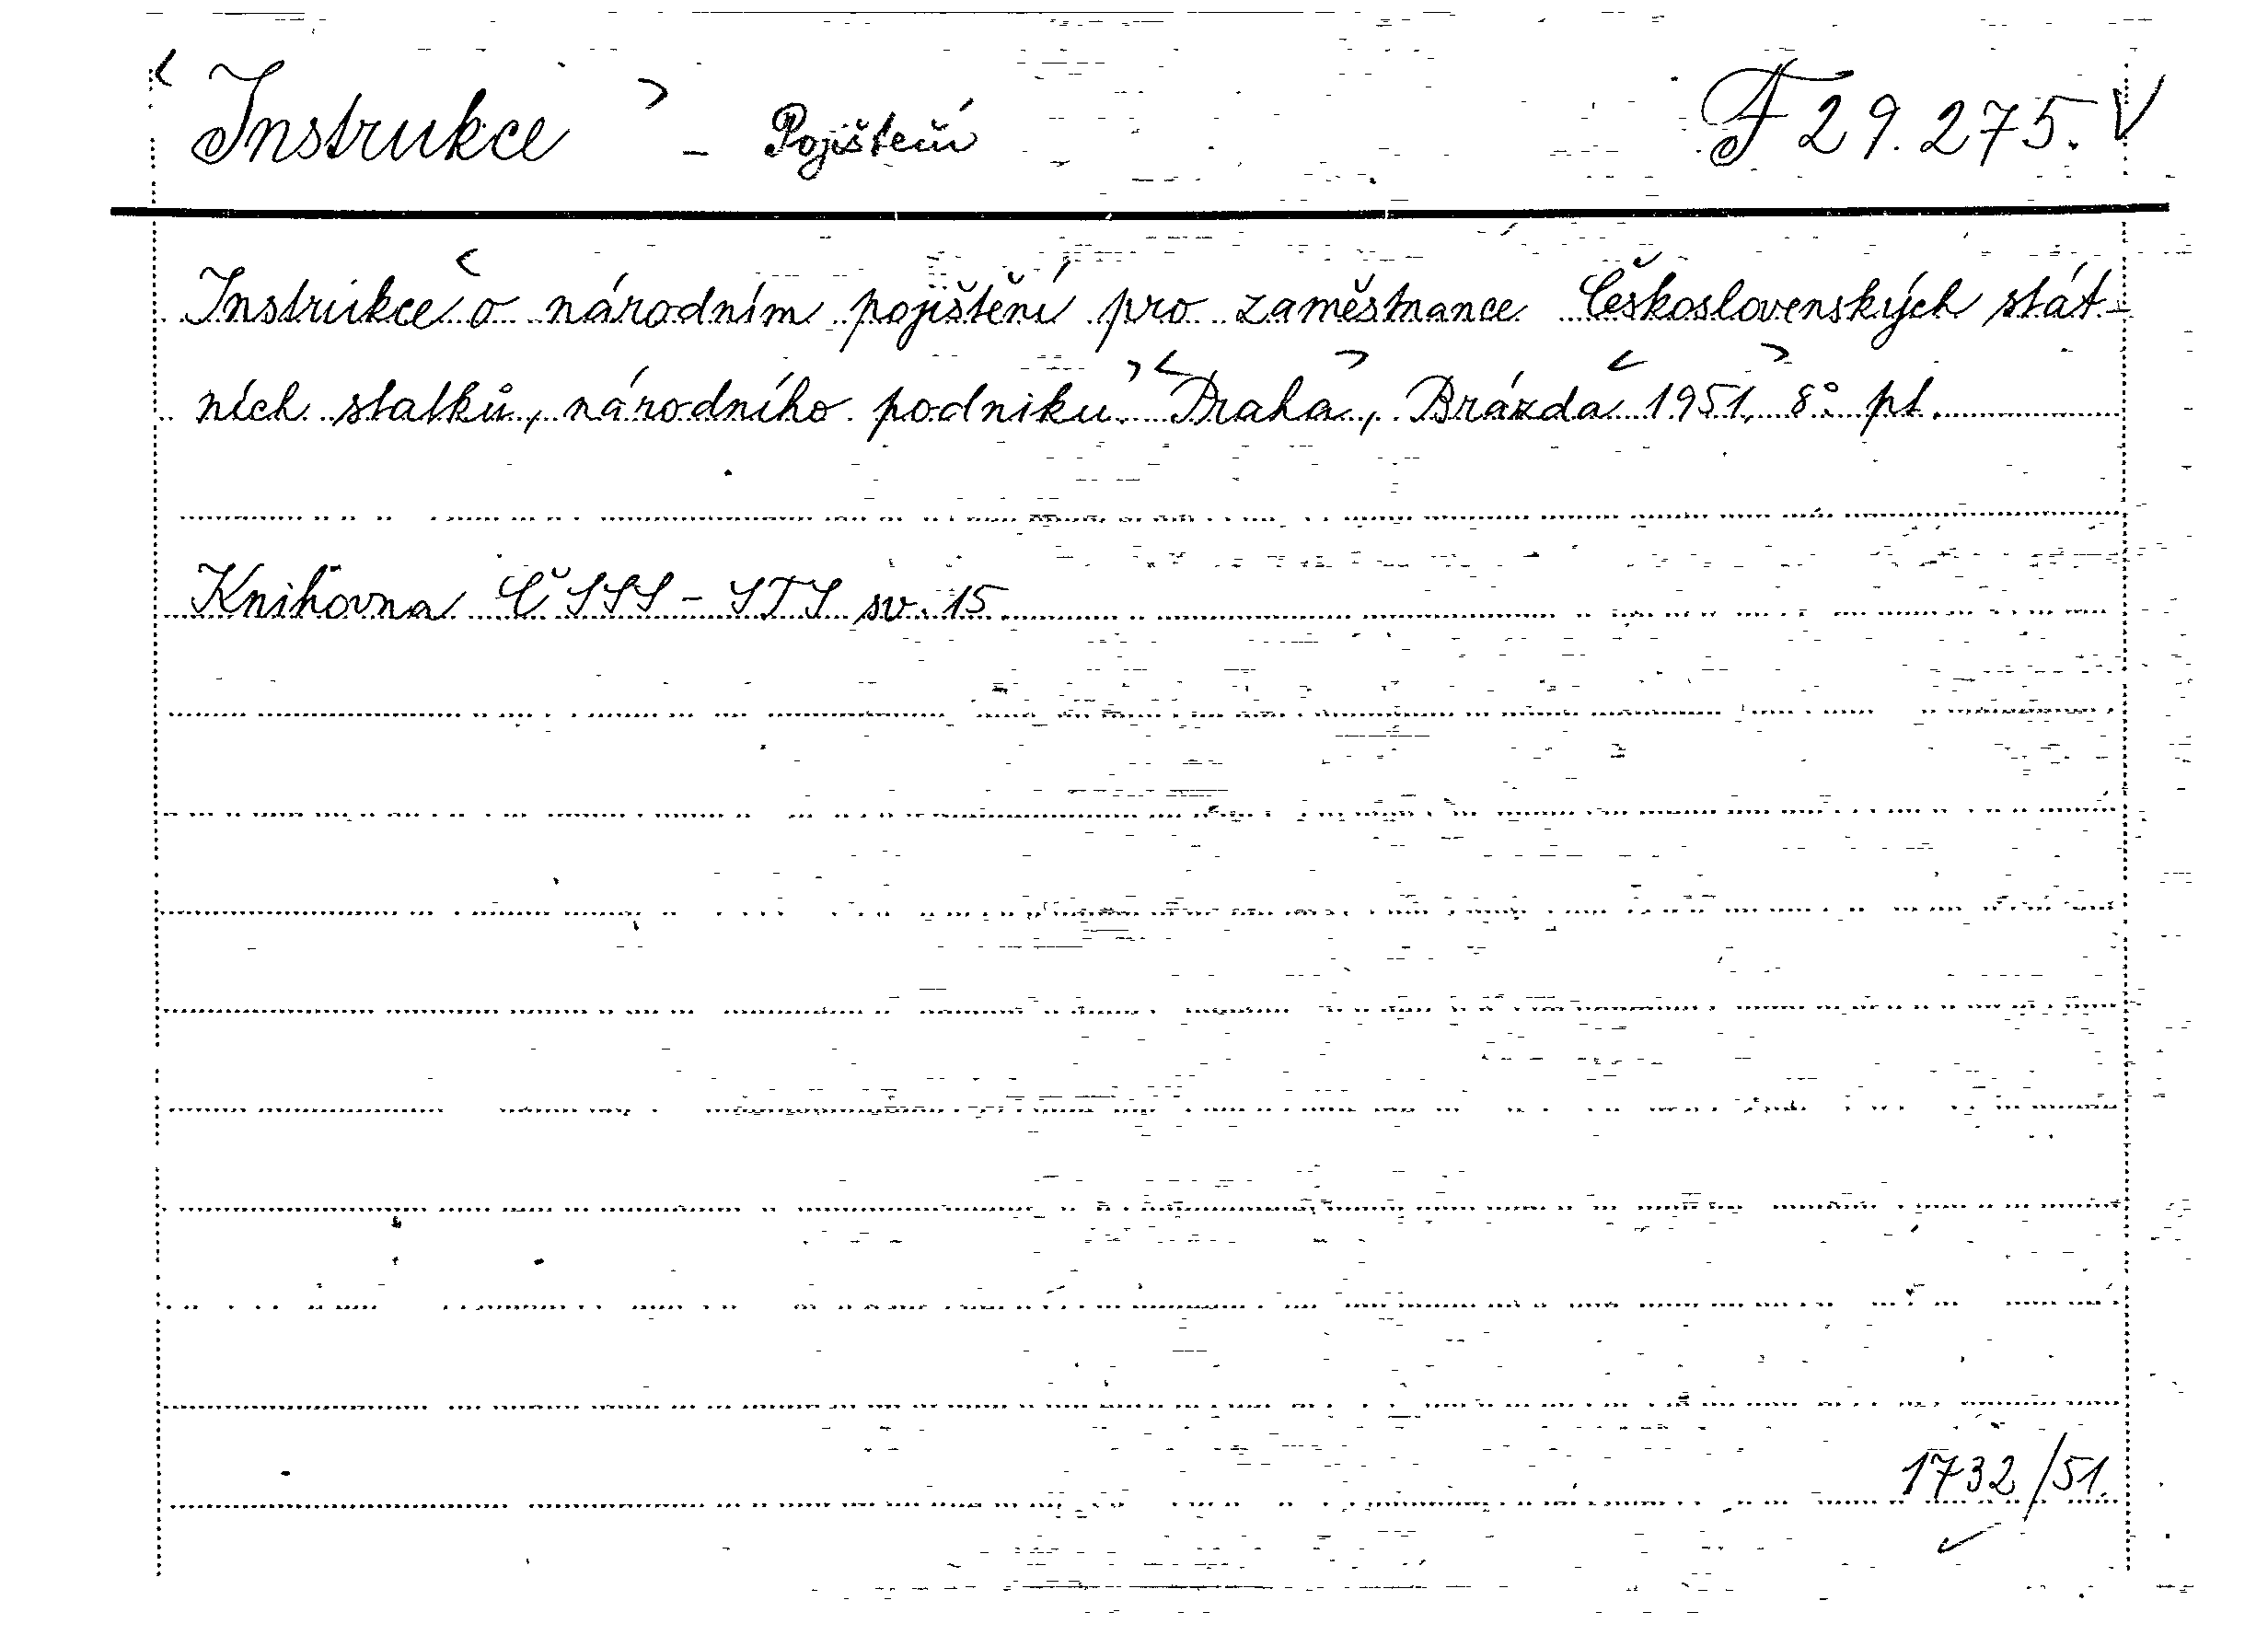 Instrukce - Pojištění F 29.275. V
Instrukce o národním pojištění pro zaměstnance Československých stát-
ních statků, národního podniku. Praha, Brázda 1951. 8° pt.
Knihovna ČSSS - STS sv. 15
1732/51.